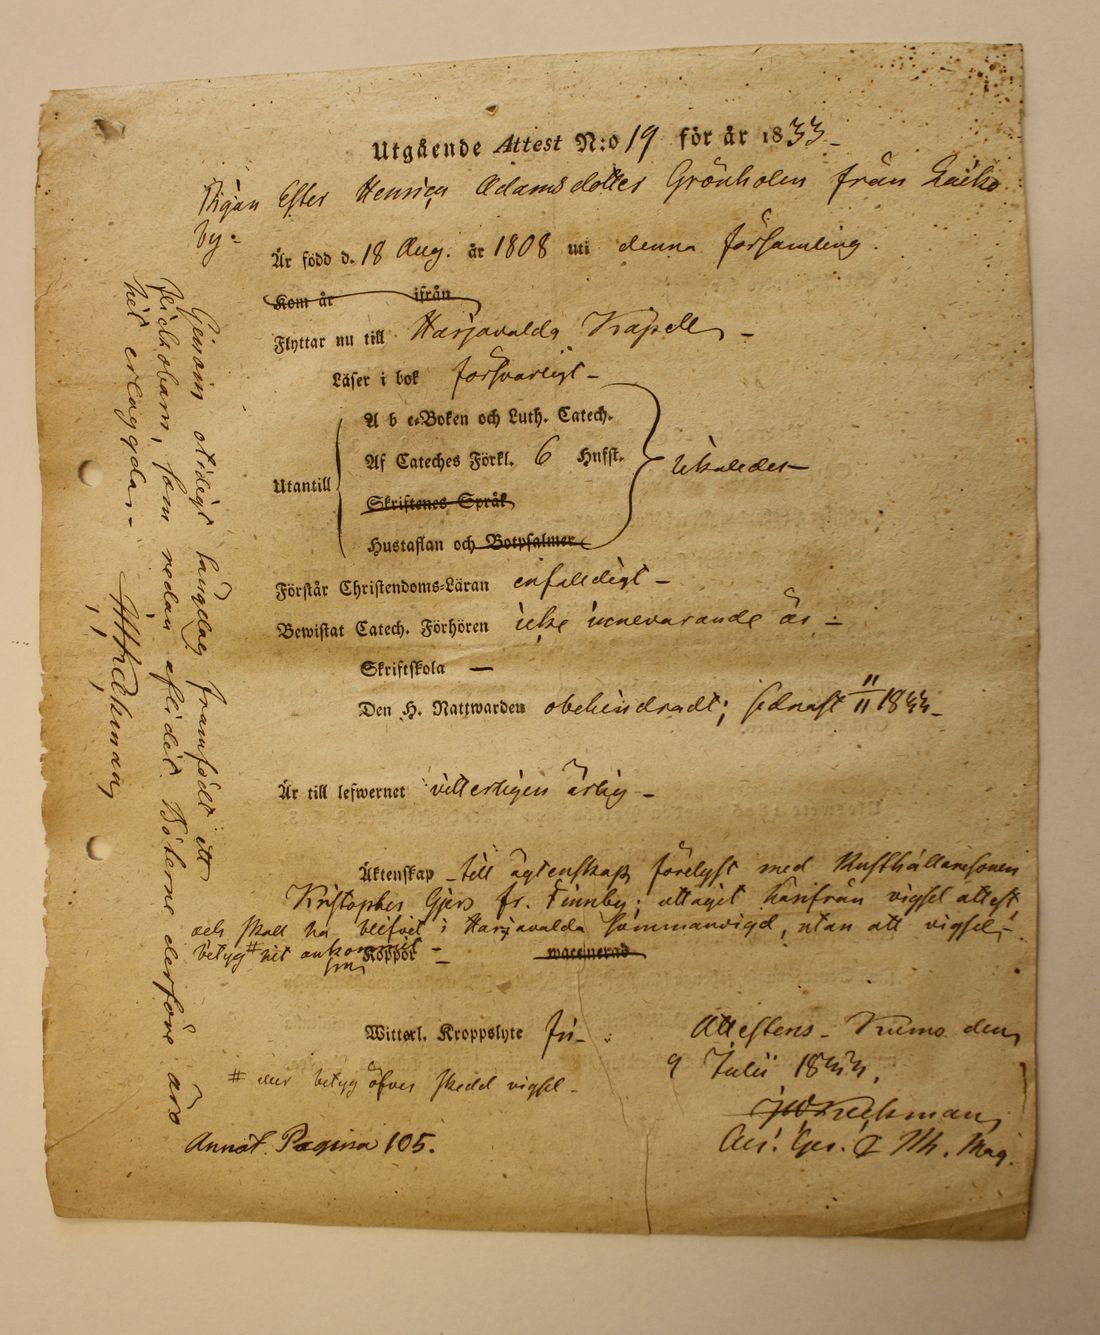 Utgående Attest N:o 19 för år 1833 –
Pigan Ester Henrica Adamsdotter Grönholm från
by –
Är född d. 18 Aug. år 1808 uti denna församling.
Kom år ifrån
Flyttar nu till Harjavalda Kapell –
Läser i bok försvarligt –
A b c-Boken och Luth. Catech.
Af Cateches Förkl. 6 Hufst.
Utantill
Skriftenes Språk
Hustaflan och Botpsalmer
Förstår Christendoms-Läran enfaldigt –
Bewistat Catech. Förhören icke innevarande år –
Skriftskola —
Den H. Nattwarden obehindradt; sednast 1833 –
Är till lefwernet vitterligen ärlig –
Äktenskap – till ägtenskap förelyst med Rusthållaresonen
Kristopher Gjers fr. Finnby; uttagit härifrån vigsel attest
och skall ha blifvit i Harjavalda sammanvigd, utan att vigsel-
betyg # hit ankommit –
Koppor – waccinerad
Wittert. Kroppslyte fri –
Attesteras – Kumo den
9 Julii 1833.
# der betyg öfver skedd vigsel –
Annot. Pagina 105.
Genom otidigt lägerslag framfödt ett
flickobarn, som redan aflidit. Böterne derföre äro
här erlagda –